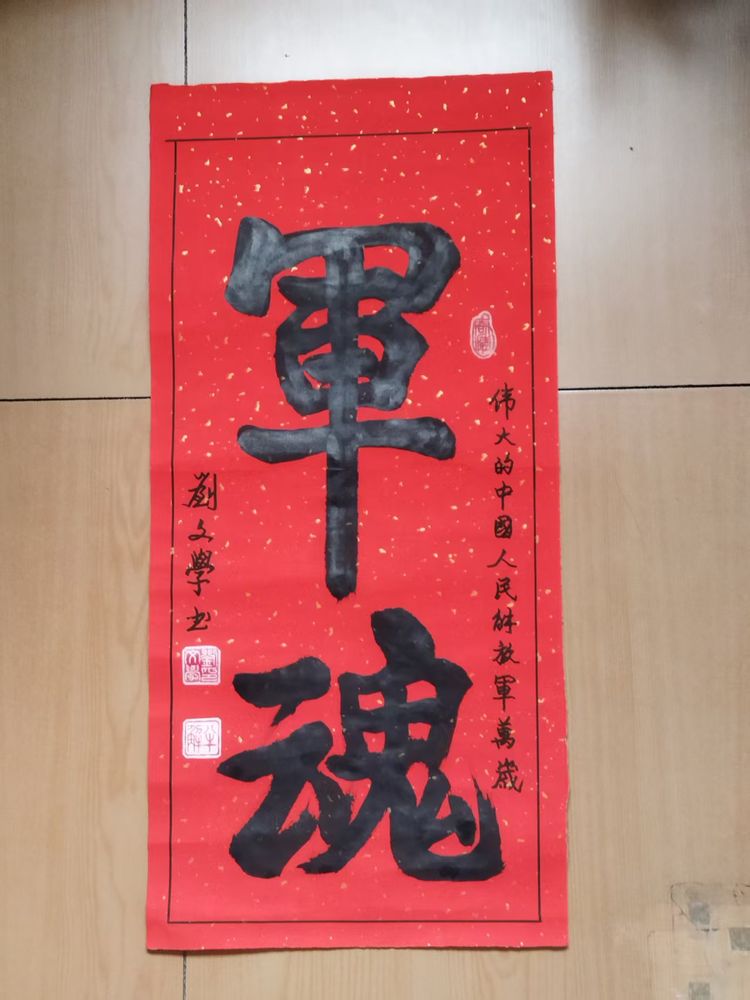 伟大的中國人民解放軍萬歲
軍魂
劉文學书